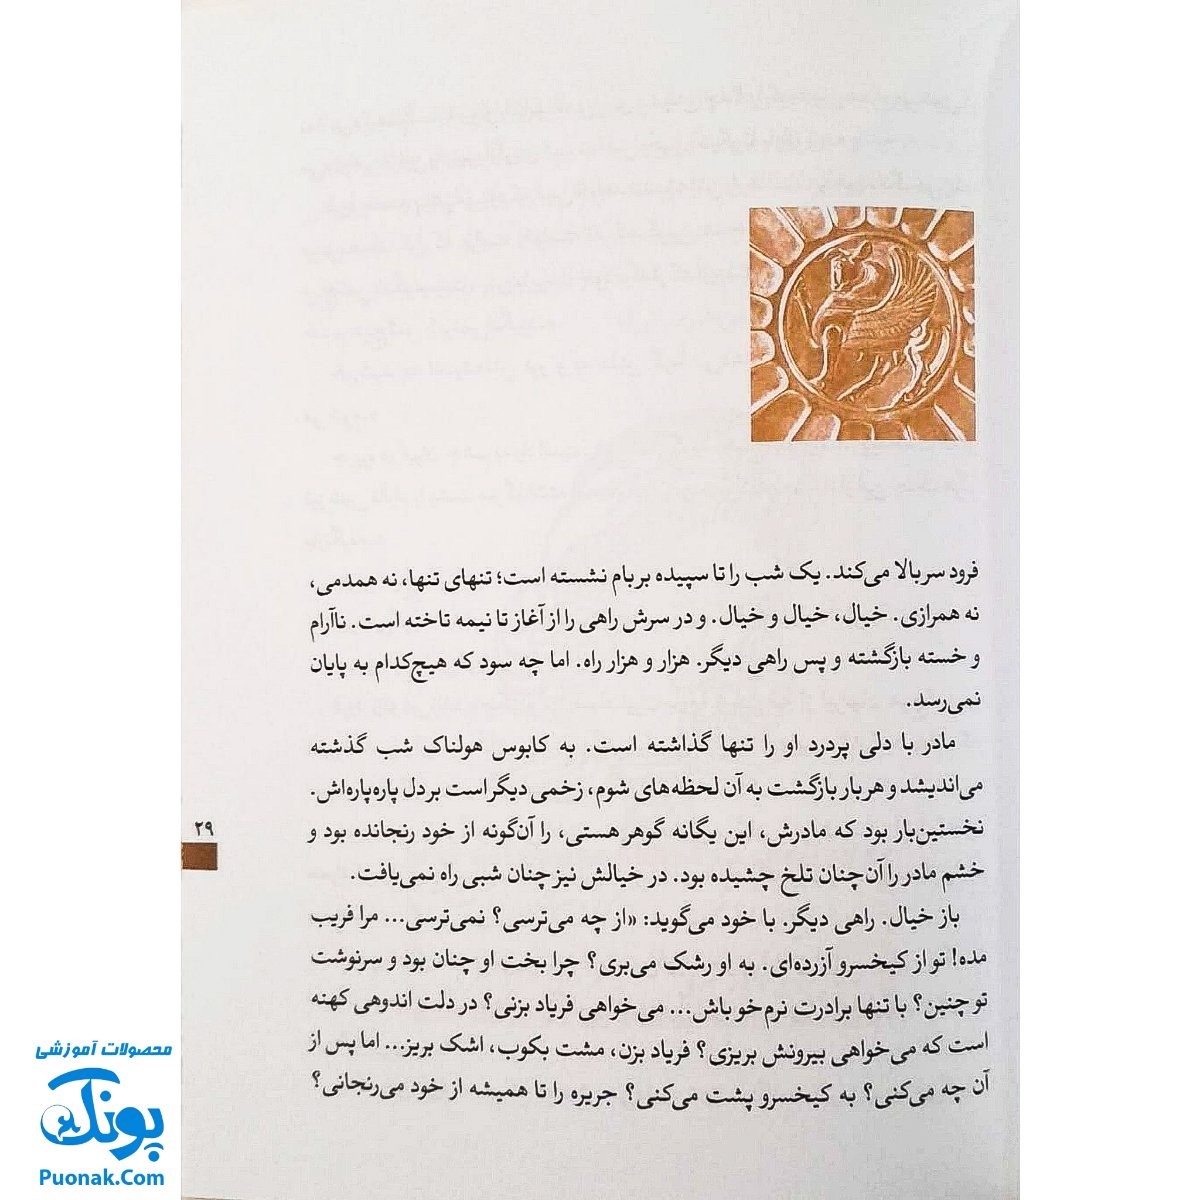 فرود سر بالا می‌کند. یک شب را تا سپیده بر بام نشسته است؛ تنهای تنها، نه همدمی،
نه همرازی. خیال، خیال و خیال. و در سرش راهی را از آغاز تا نیمه تاخته است. ناآرام
و خسته بازگشته و پس راهی دیگر. هزار و هزار راه. اما چه سود که هیچ‌کدام به پایان
نمی‌رسد.
مادر با دلی پردرد او را تنها گذاشته است. به کابوس هولناک شب گذشته
می‌اندیشد و هربار بازگشت به آن لحظه‌های شوم، زخمی دیگر است بر دل پاره‌پاره‌اش.
نخستین‌بار بود که مادرش، این یگانه گوهر هستی، را آن‌گونه از خود رنجانده بود و
خشم مادر را آن‌چنان تلخ چشیده بود. در خیالش نیز چنان شبی راه نمی‌یافت.
باز خیال. راهی دیگر. با خود می‌گوید: «از چه می‌ترسی؟ نمی‌ترسی... مرا فریب
مده! تو از کیخسرو آزرده‌ای. به او رشک می‌بری؟ چرا بخت او چنان بود و سرنوشت
تو چنین؟ با تنها برادرت نرم‌خو باش... می‌خواهی فریاد بزنی؟ در دلت اندوهی کهنه
است که می‌خواهی بیرونش بریزی؟ فریاد بزن، مشت بکوب، اشک بریز... اما پس از
آن چه می‌کنی؟ به کیخسرو پشت می‌کنی؟ جریره را تا همیشه از خود می‌رنجانی؟
۲۹
محصولات آموزشی
پونک
Puonak.Com